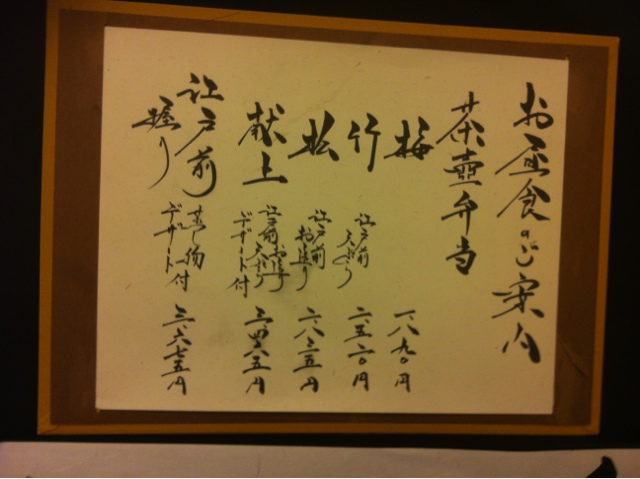 お昼食のご案内
茶壷弁当
梅
一八九〇円
竹
江戸前
天ぷら
二五二〇円
松
江戸前
お造り
二八三五円
献上
江戸前お造り
天ぷら
デザート付
三四六五円
江戸前
握り
蒸し物
デザート付
三六七五円